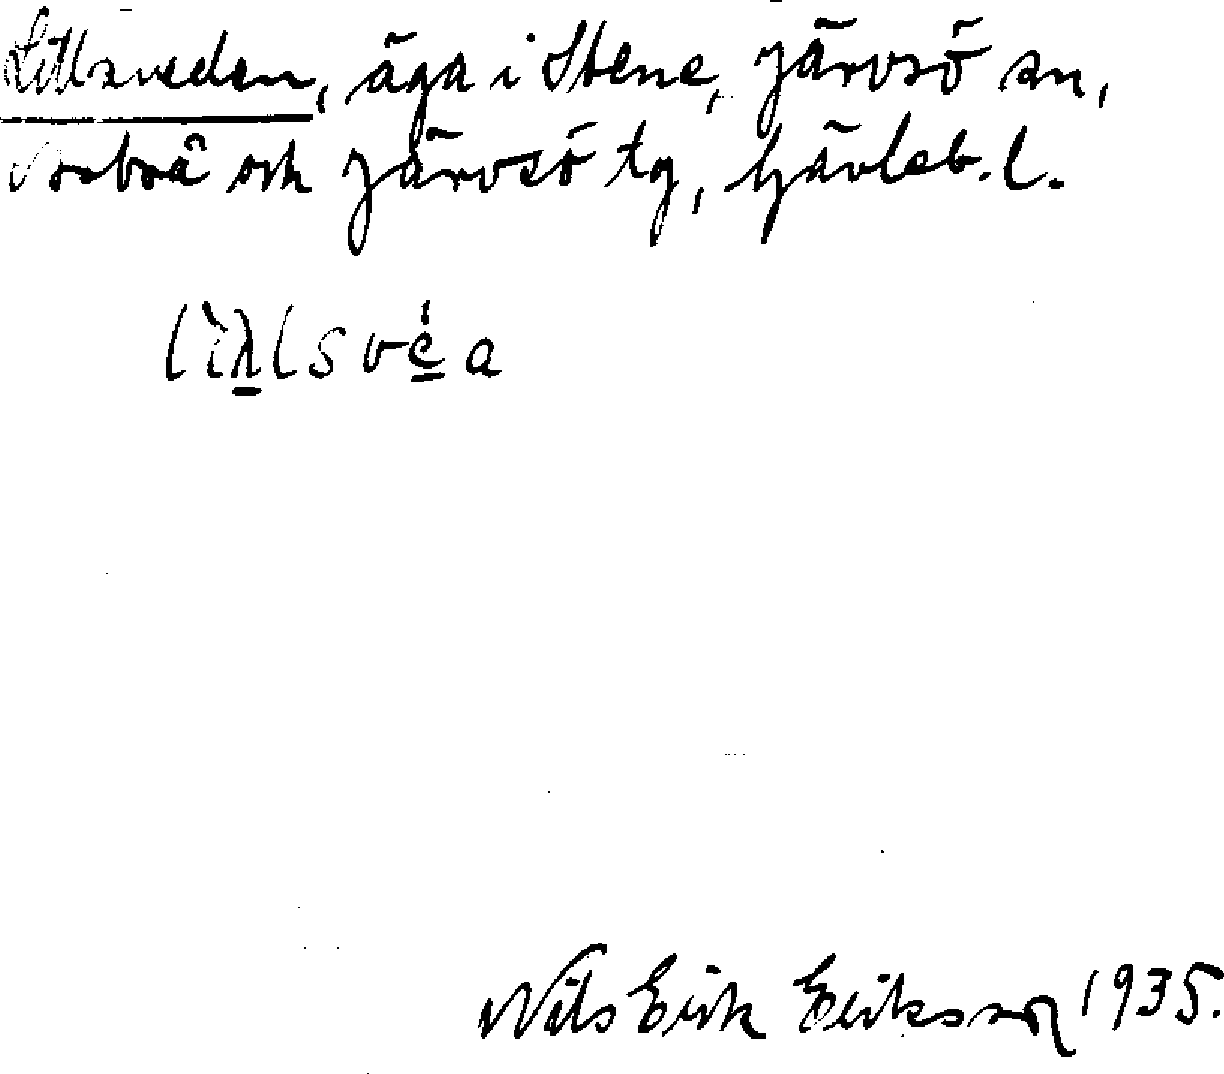 Lillsveden, äga i Stene, Järvsö sn,
Norbrå och Järvsö tg, Gävleb. l.
lìλlsvéa
Nils Erik Eriksson 1935.